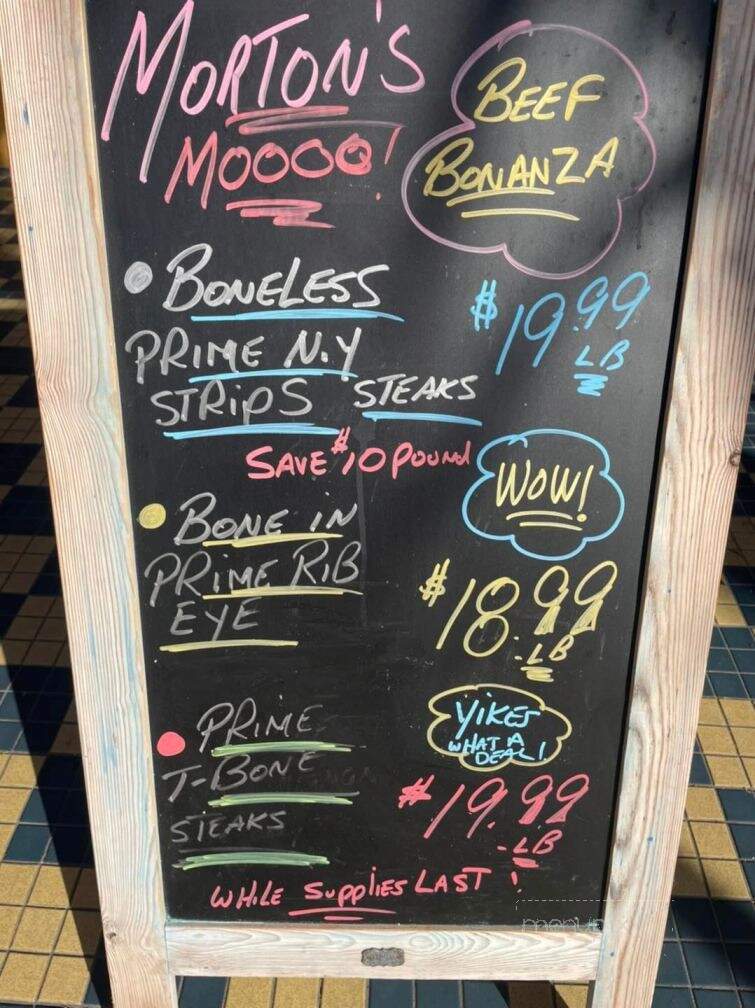 MORTON'S
MOOOO!
BEEF
BONANZA
BONELESS
PRIME N.Y
STRIPS STEAKS
$19.99
LB
SAVE $10 POUND
WOW!
BONE IN
PRIME RIB
EYE
$18.99
LB
PRIME
T-BONE
STEAKS
YIKES
WHAT A
DEAL!
$19.99
LB
WHILE SUPPLIES LAST !